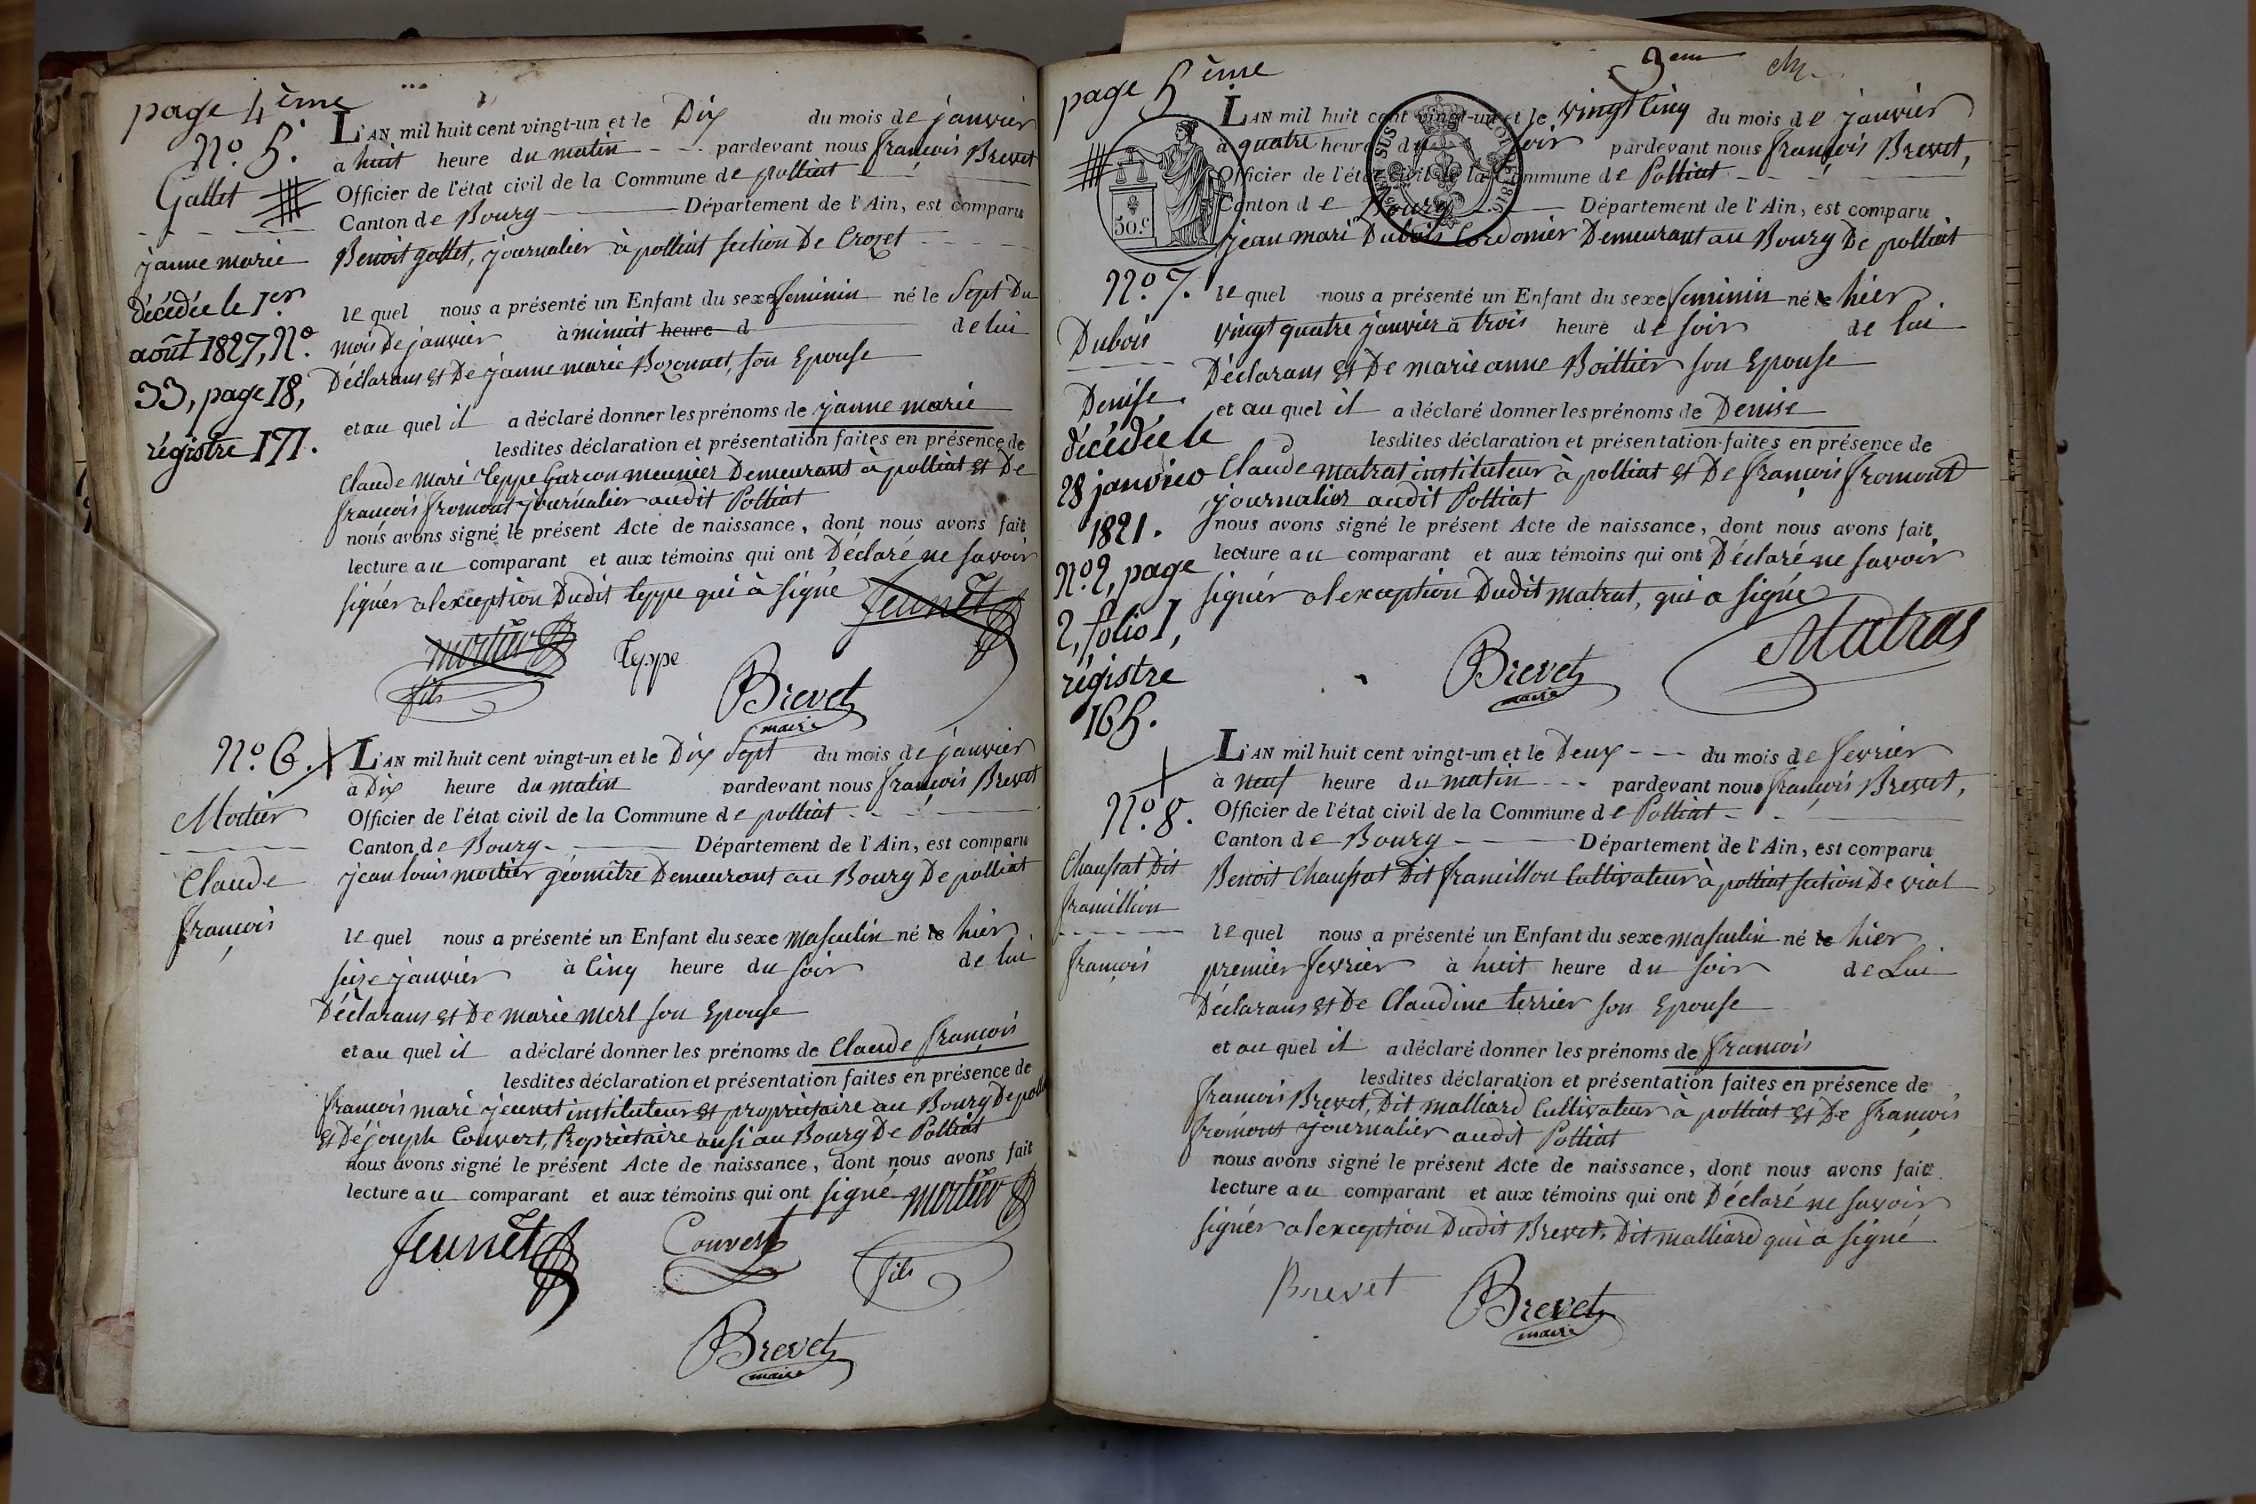 page 4ème
N.o 5.
Gallet
janne marie
décédée le 1er
août 1827, N.o
33, page 18,
régistre 171.
L'AN mil huit cent vingt-un et le Dix du mois de janvier
à huit heure du matin - - - pardevant nous françois Brevet
Officier de l'état civil de la Commune de polliat
Canton de Bourg Département de l'Ain, est comparu
Benoit gallet, journalier à polliat section De Crozet
le quel nous a présenté un Enfant du sexe feminin né le Sept Du
mois De janvier à minuit heure d de lui
Déclarans et De janne marie Bozonnet, son Epouse
et au quel il a déclaré donner les prénoms de janne marie
lesdites déclaration et présentation faites en présence de
Claude Mari Teppe Garcon meunier Demeurant à polliat et De
françois fromont journalier audit Polliat
nous avons signé le présent Acte de naissance, dont nous avons fait
lecture au comparant et aux témoins qui ont Déclaré ne savoir
signer alexception Dudit teppe qui à signé
Jeunet
mortier
fils
Teppe
Brevet
maire
N.o 6.
Mortier
Claude
françois
L'AN mil huit cent vingt-un et le Dix Sept du mois de janvier
à Dix heure du matin pardevant nous françois Brevet
Officier de l'état civil de la Commune de polliat
Canton de Bourg Département de l'Ain, est comparu
jean louis mortier géomètre Demeurant au Bourg De polliat
le quel nous a présenté un Enfant du sexe masculin né le hier
seize janvier à Cinq heure du soir de lui
Déclarans et De marie merl son Epouse
et au quel il a déclaré donner les prénoms de Claude françois
lesdites déclaration et présentation faites en présence de
françois mari jeunet instituteur et propriétaire au Bourg De poll
et De joseph Convert, Propriétaire aussi au Bourg De Polliat
nous avons signé le présent Acte de naissance, dont nous avons fait
lecture au comparant et aux témoins qui ont signé
mortier
fils
Jeunet
Convert
Brevet
maire
page 5ème
3em
50.c
N.o 7.
Dubois
Denise.
décédée le
28 janvier
1821.
N.o 2, page
2, folio 1,
régistre
165.
L'AN mil huit cent vingt-un et le vingt Cinq du mois de janvier
à quatre heure du soir pardevant nous françois Brevet,
Officier de l'état civil de la Commune de Polliat
Canton de Bourg Département de l'Ain, est comparu
jean mari Dubois Cordonier Demeurant au Bourg De polliat
le quel nous a présenté un Enfant du sexe feminin né le hier
vingt quatre janvier à trois heure de soir de lui
Déclarans et De marie anne Boittier son Epouse
et au quel il a déclaré donner les prénoms de Denise
lesdites déclaration et présentation faites en présence de
Claude matrat instituteur à polliat et De françois fromont
journalier audit Polliat
nous avons signé le présent Acte de naissance, dont nous avons fait
lecture au comparant et aux témoins qui ont Déclaré ne savoir
signer alexception Dudit matrat, qui a signé
Brevet
maire
Matras
N.o 8.
Chaussat Dit
françois
L'AN mil huit cent vingt-un et le Deux - - - du mois de fevrier
à neuf heure du matin - - - pardevant nous françois Brevet,
Officier de l'état civil de la Commune de Polliat
Canton de Bourg Département de l'Ain, est comparu
Benoit Chaussat Dit Cultivateur à polliat section De vial
le quel nous a présenté un Enfant du sexe masculin né le hier
premier fevrier à huit heure du soir de Lui
Déclarans et De Claudine terrier son Epouse
et au quel il a déclaré donner les prénoms de françois
lesdites déclaration et présentation faites en présence de
françois Brevet, Dit malliard Cultivateur à polliat et De françois
fromont journalier audit Polliat
nous avons signé le présent Acte de naissance, dont nous avons fait
lecture au comparant et aux témoins qui ont Déclaré ne savoir
signer alexception Dudit Brevet, Dit malliard qui à signé
Brevet
Brevet
maire